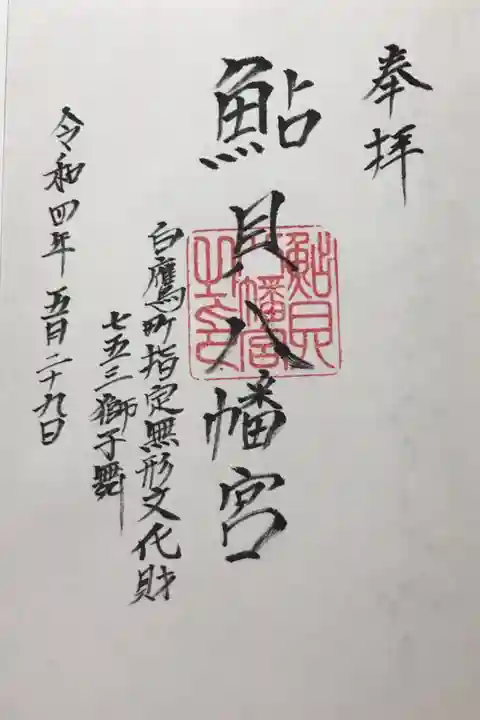 奉拝
鮎貝八幡宮
鮎貝
八幡宮
之印
白鷹町指定無形文化財
七五三獅子舞
令和四年五月二十九日